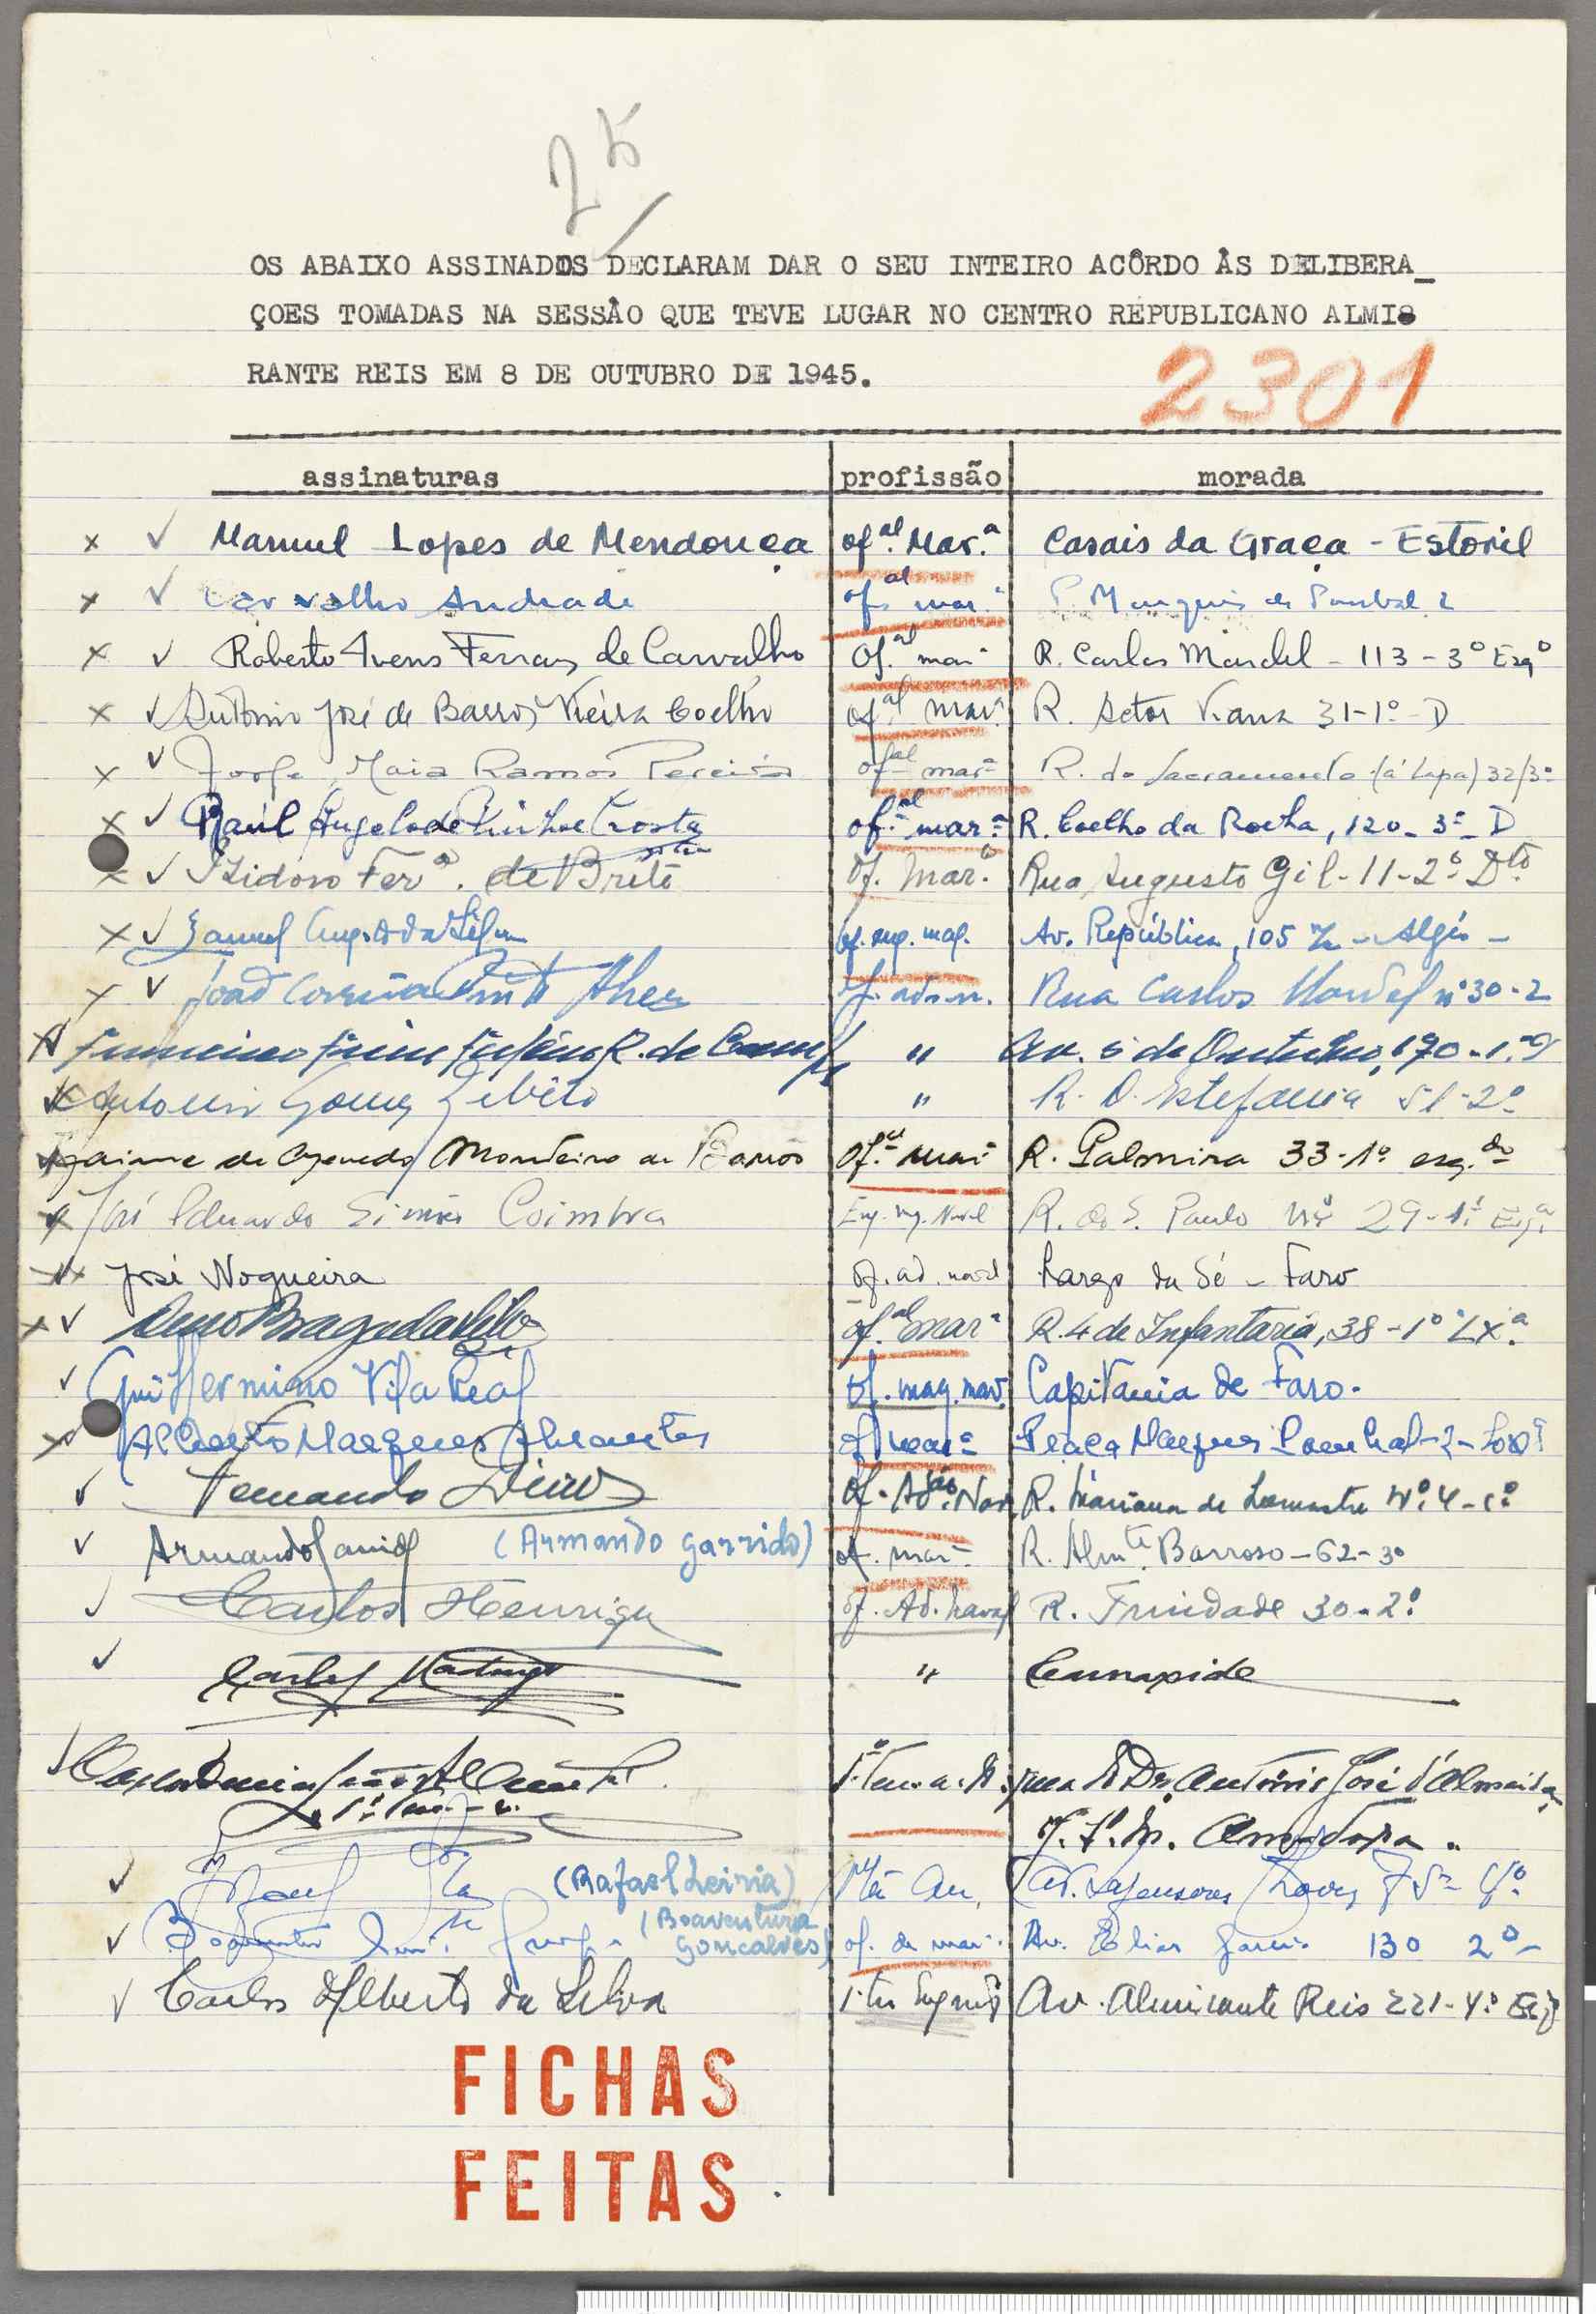 25
OS ABAIXO ASSINADOS DECLARAM DAR O SEU INTEIRO ACÔRDO ÀS DELIBERA_
ÇOES TOMADAS NA SESSÃO QUE TEVE LUGAR NO CENTRO REPUBLICANO ALMI
RANTE REIS EM 8 DE OUTUBRO DE 1945.
2301
assinaturas profissão morada
x ✓ Manuel Lopes de Mendonça of.al Mar.a Casais da Graça - Estoril
x ✓ Carvalho Andrade of.al mar.a P. Marquês de Pombal 2
x ✓ Roberto Ivens Ferraz de Carvalho Of.al mar.a R. Carlos Mardel - 113 - 3º Esqº
x ✓ António José de Barros Vieira Coelho of.al mar.a R. Actor Viana 31-1º-D
x ✓ Jorge Maia Ramos Pereira of.al mar.a R. do Sacramento (à Lapa) 32/3º
x ✓ Raúl Angelo de Pinho Crosta of.al mar.a R. Coelho da Rocha, 120 - 3º - D
x ✓ Izidoro Fer.a de Brito Of. Mar.a Rua Augusto Gil - 11 - 2º Dto
x ✓ Samuel Augusto da Silva of. eng. maq. Av. República, 105 - Algés -
x ✓ João Correia Of. adm. Rua Carlos Mardel nº 30 - 2
R. de Campos " Av. 5 de Outubro, 170 - 1.º
António Gomes " R. D. Estefania 51-2º
Jaime de Azevedo Monteiro de Barros Of.al mar.a R. Palmira 33-1º esq.do
José Eduardo Simões Coimbra Eng. Naval R. de S. Paulo Nº 29 - 1º Esq.
José Nogueira of. ad. naval Largo da Sé - Faro
x ✓ Braga da Silva of.al mar.a R. 4 de Infantaria, 38 - 1º Lx.a
✓ Guilhermino Vila Real Of. maq. nav. Capitania de Faro.
x Alberto Marques Abrantes of mar.a Praça Marques Pombal - 2 -
✓ Fernando Diniz Of. Adão. Nav. R. Mariana de Lencastre Nº 4 - 1º
✓ Armando Garrido (Armando Garrido) of. mar.a R. Almte. Barroso - 62 - 3º
✓ Carlos Henriq Of. Ad. Naval R. Trindade 30 - 2º
✓ Carlos " Carnaxide
✓ 1º Ten. a. N. rua Dr. António José d'Almeida
1º Ten.
Amadora.
✓ (Rafael Leiria) Av. Defensores Chaves 4º
✓ Boaventura (Boaventura
Goncalves) of. de mar.a Av. Elias Garcia 130 2º -
✓ Carlos Alberto da Silva 1º ten Av. Almirante Reis 221 - 4º Esq
FICHAS
FEITAS